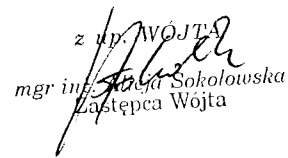 z up. WÓJTA
mgr inż. Alicja Sokołowska
Zastępca Wójta